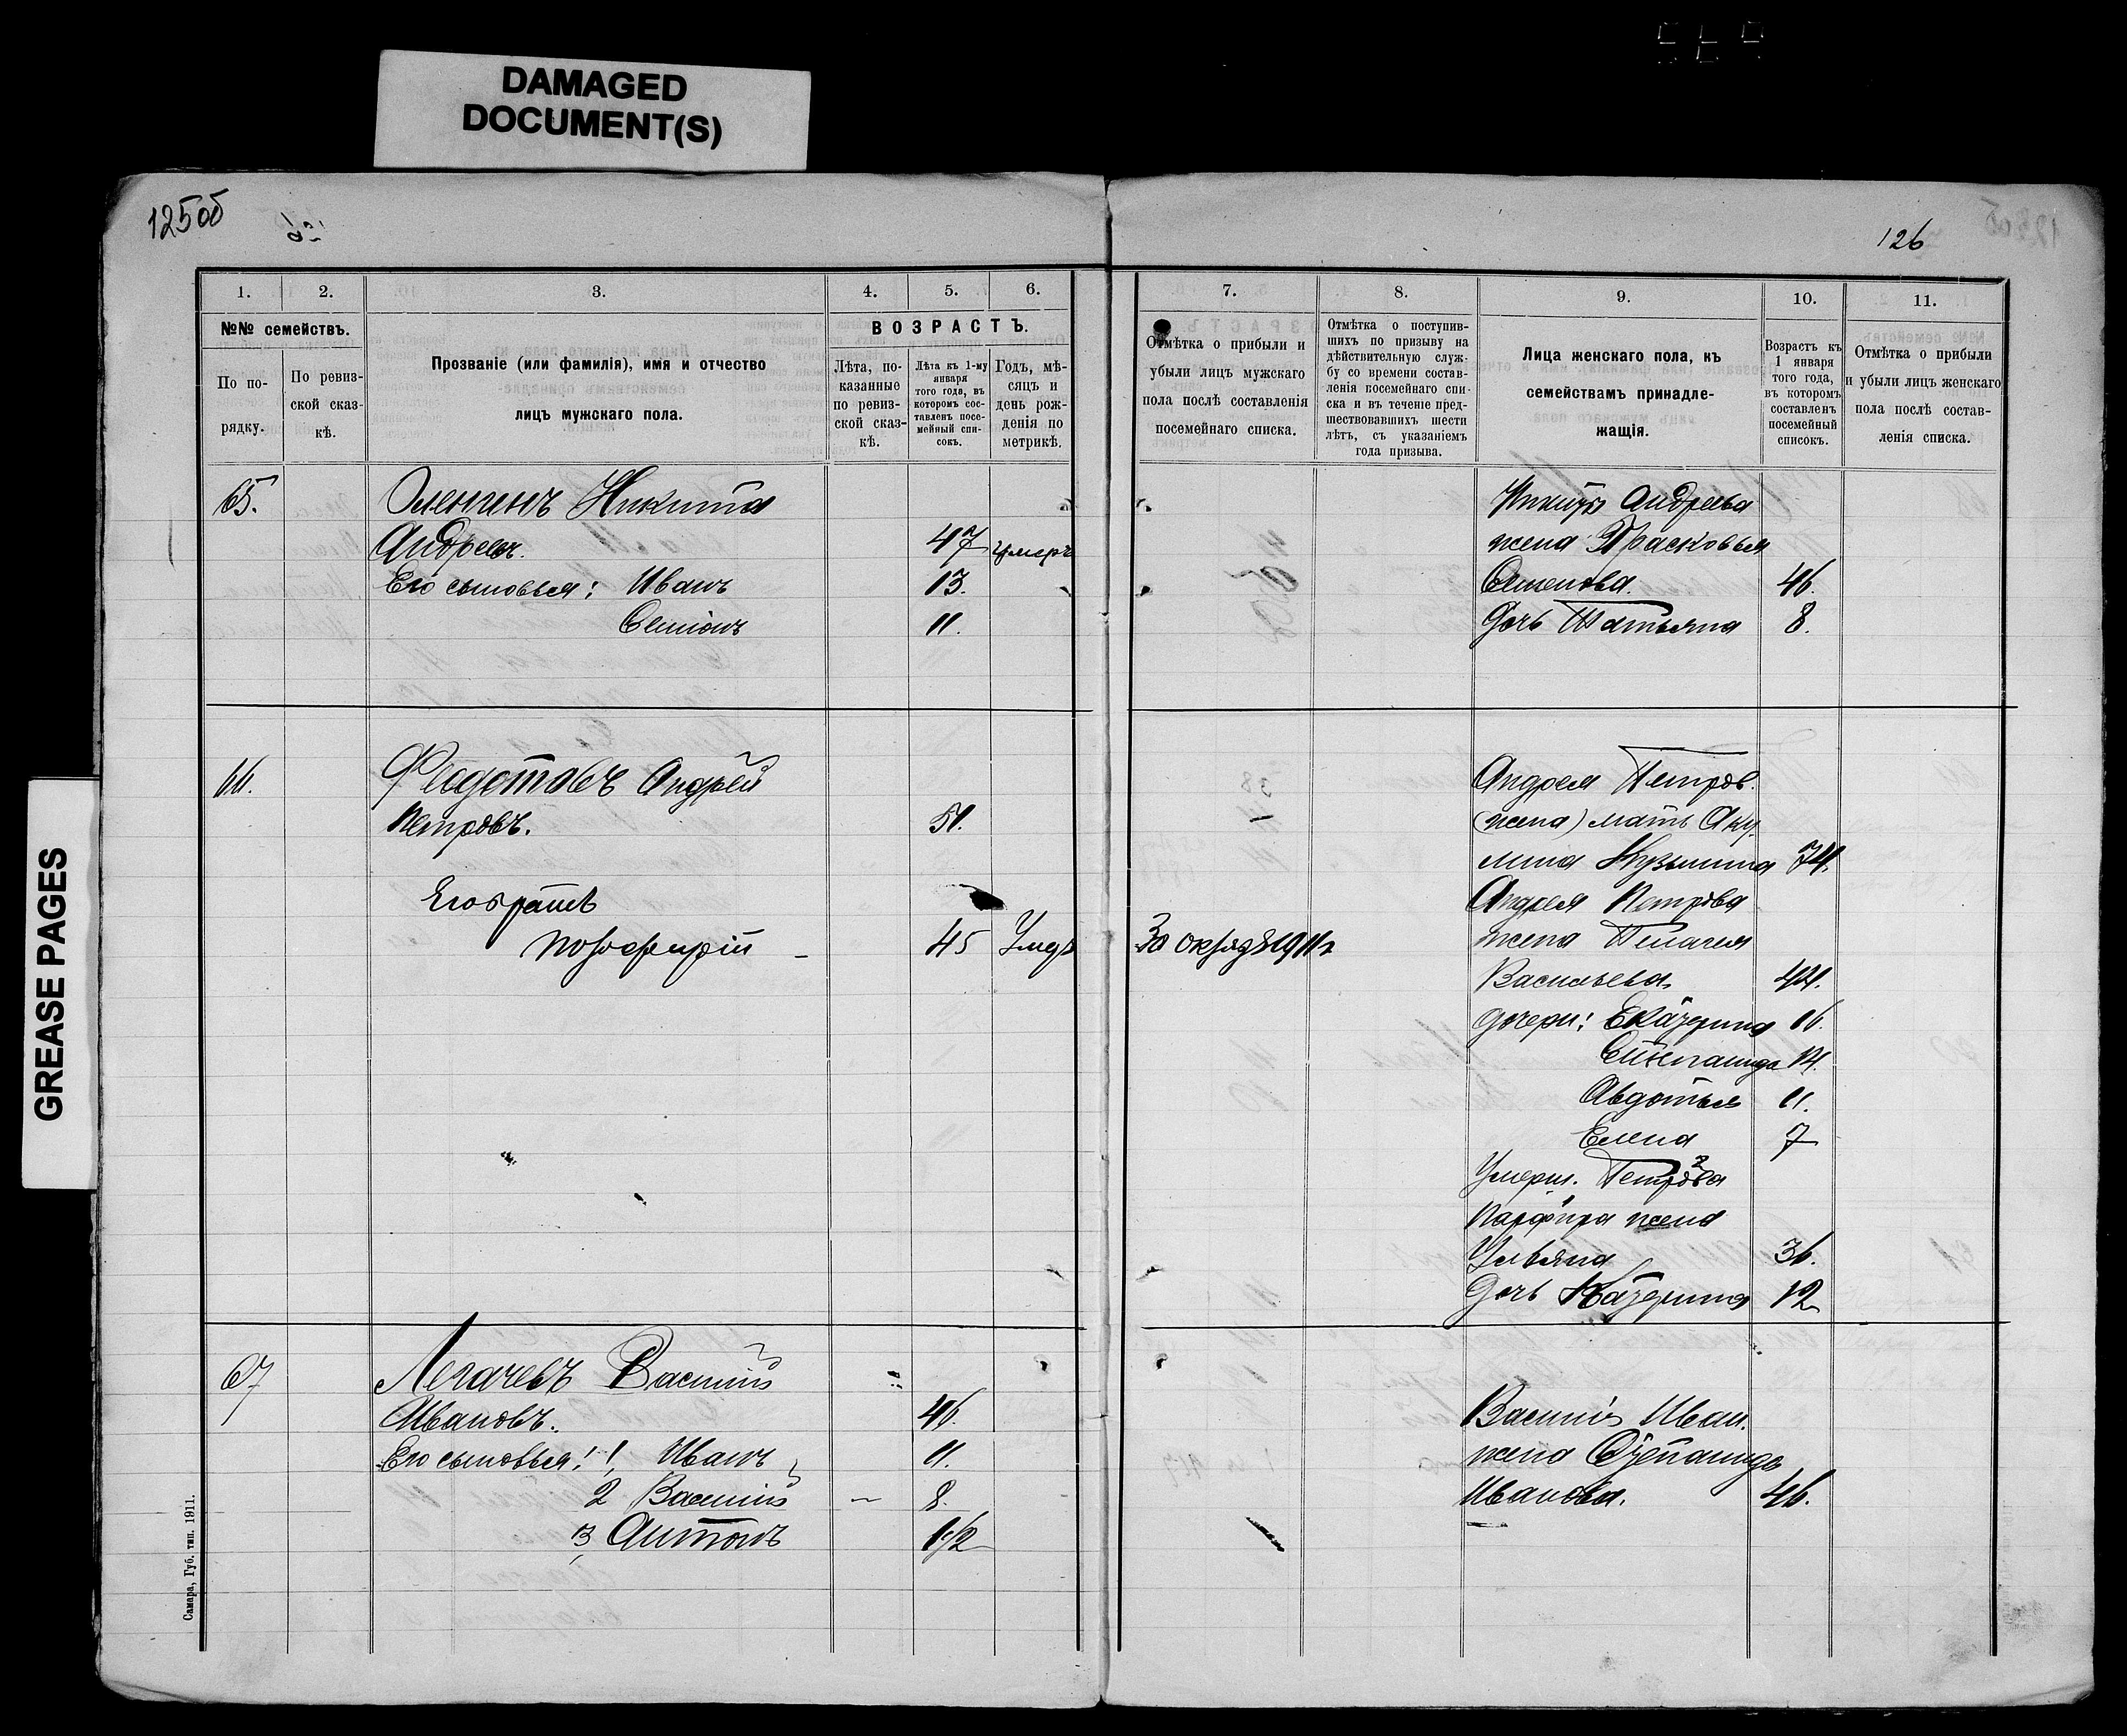 DAMAGED
DOCUMENT(S)
GREASE PAGES
125об
126
1. 2. 3. 4. 5. 6.
№№ семействъ.
По по-
рядку.
По ревиз-
ской сказ-
кѣ.
Прозваніе (или фамилія), имя и отчество
лицъ мужскаго пола.
ВОЗРАСТЪ.
Лѣта, по-
казанные
по ревиз-
ской сказ-
кѣ.
Лѣта къ 1-му
января
того года, въ
которомъ сос-
тавленъ посе-
мейный спи-
сокъ.
Годъ, мѣ-
сяцъ и
день рож-
денія по
метрикѣ.
65.
Никита
Андреевъ. 47 умеръ
Его сыновья: Иванъ 13.
Семіонъ 11.
66.
Федотовъ Андрей
Петровъ. 51.
Его братъ
45
67
Легачевъ Василій
Ивановъ. 46.
Его сыновья: 1, Иванъ 11.
2 Василій 8.
3, Антонъ 1 1/2
Самара, Губ. тип. 1911.
7. 8. 9. 10. 11.
Отмѣтка о прибыли и
убыли лицъ мужскаго
пола послѣ составленія
посемейнаго списка.
Отмѣтка о поступив-
шихъ по призыву на
дѣйствительную служ-
бу со времени состав-
ленія посемейнаго спи-
ска и въ теченіе пред-
шествовавшихъ шести
лѣтъ, съ указаніемъ
года призыва.
Лица женскаго пола, къ
семействамъ принадле-
жащія.
Возрастъ къ
1 января
того года,
въ которомъ
составленъ
посемейный
списокъ.
Отмѣтка о прибыли
и убыли лицъ женскаго
пола послѣ состав-
ленія списка.
Никиты Андреева
жена Прасковья
Семенова. 46.
Дочь Татьяна 8.
Андрея Петров.
(жена) мать Аку-
лина Кузьмина 74.
Андрея Петрова
жена Пелагея
30 1911г
Васильева 44.
дочери: Екатерина 16.
Степанида 14.
Авдотья 11.
Елена 7
Умерш. Петрова
Парфира жена
Ульяна 36.
Дочь Катерина 12
Василія Иван.
жена Степанида
Иванова. 46.